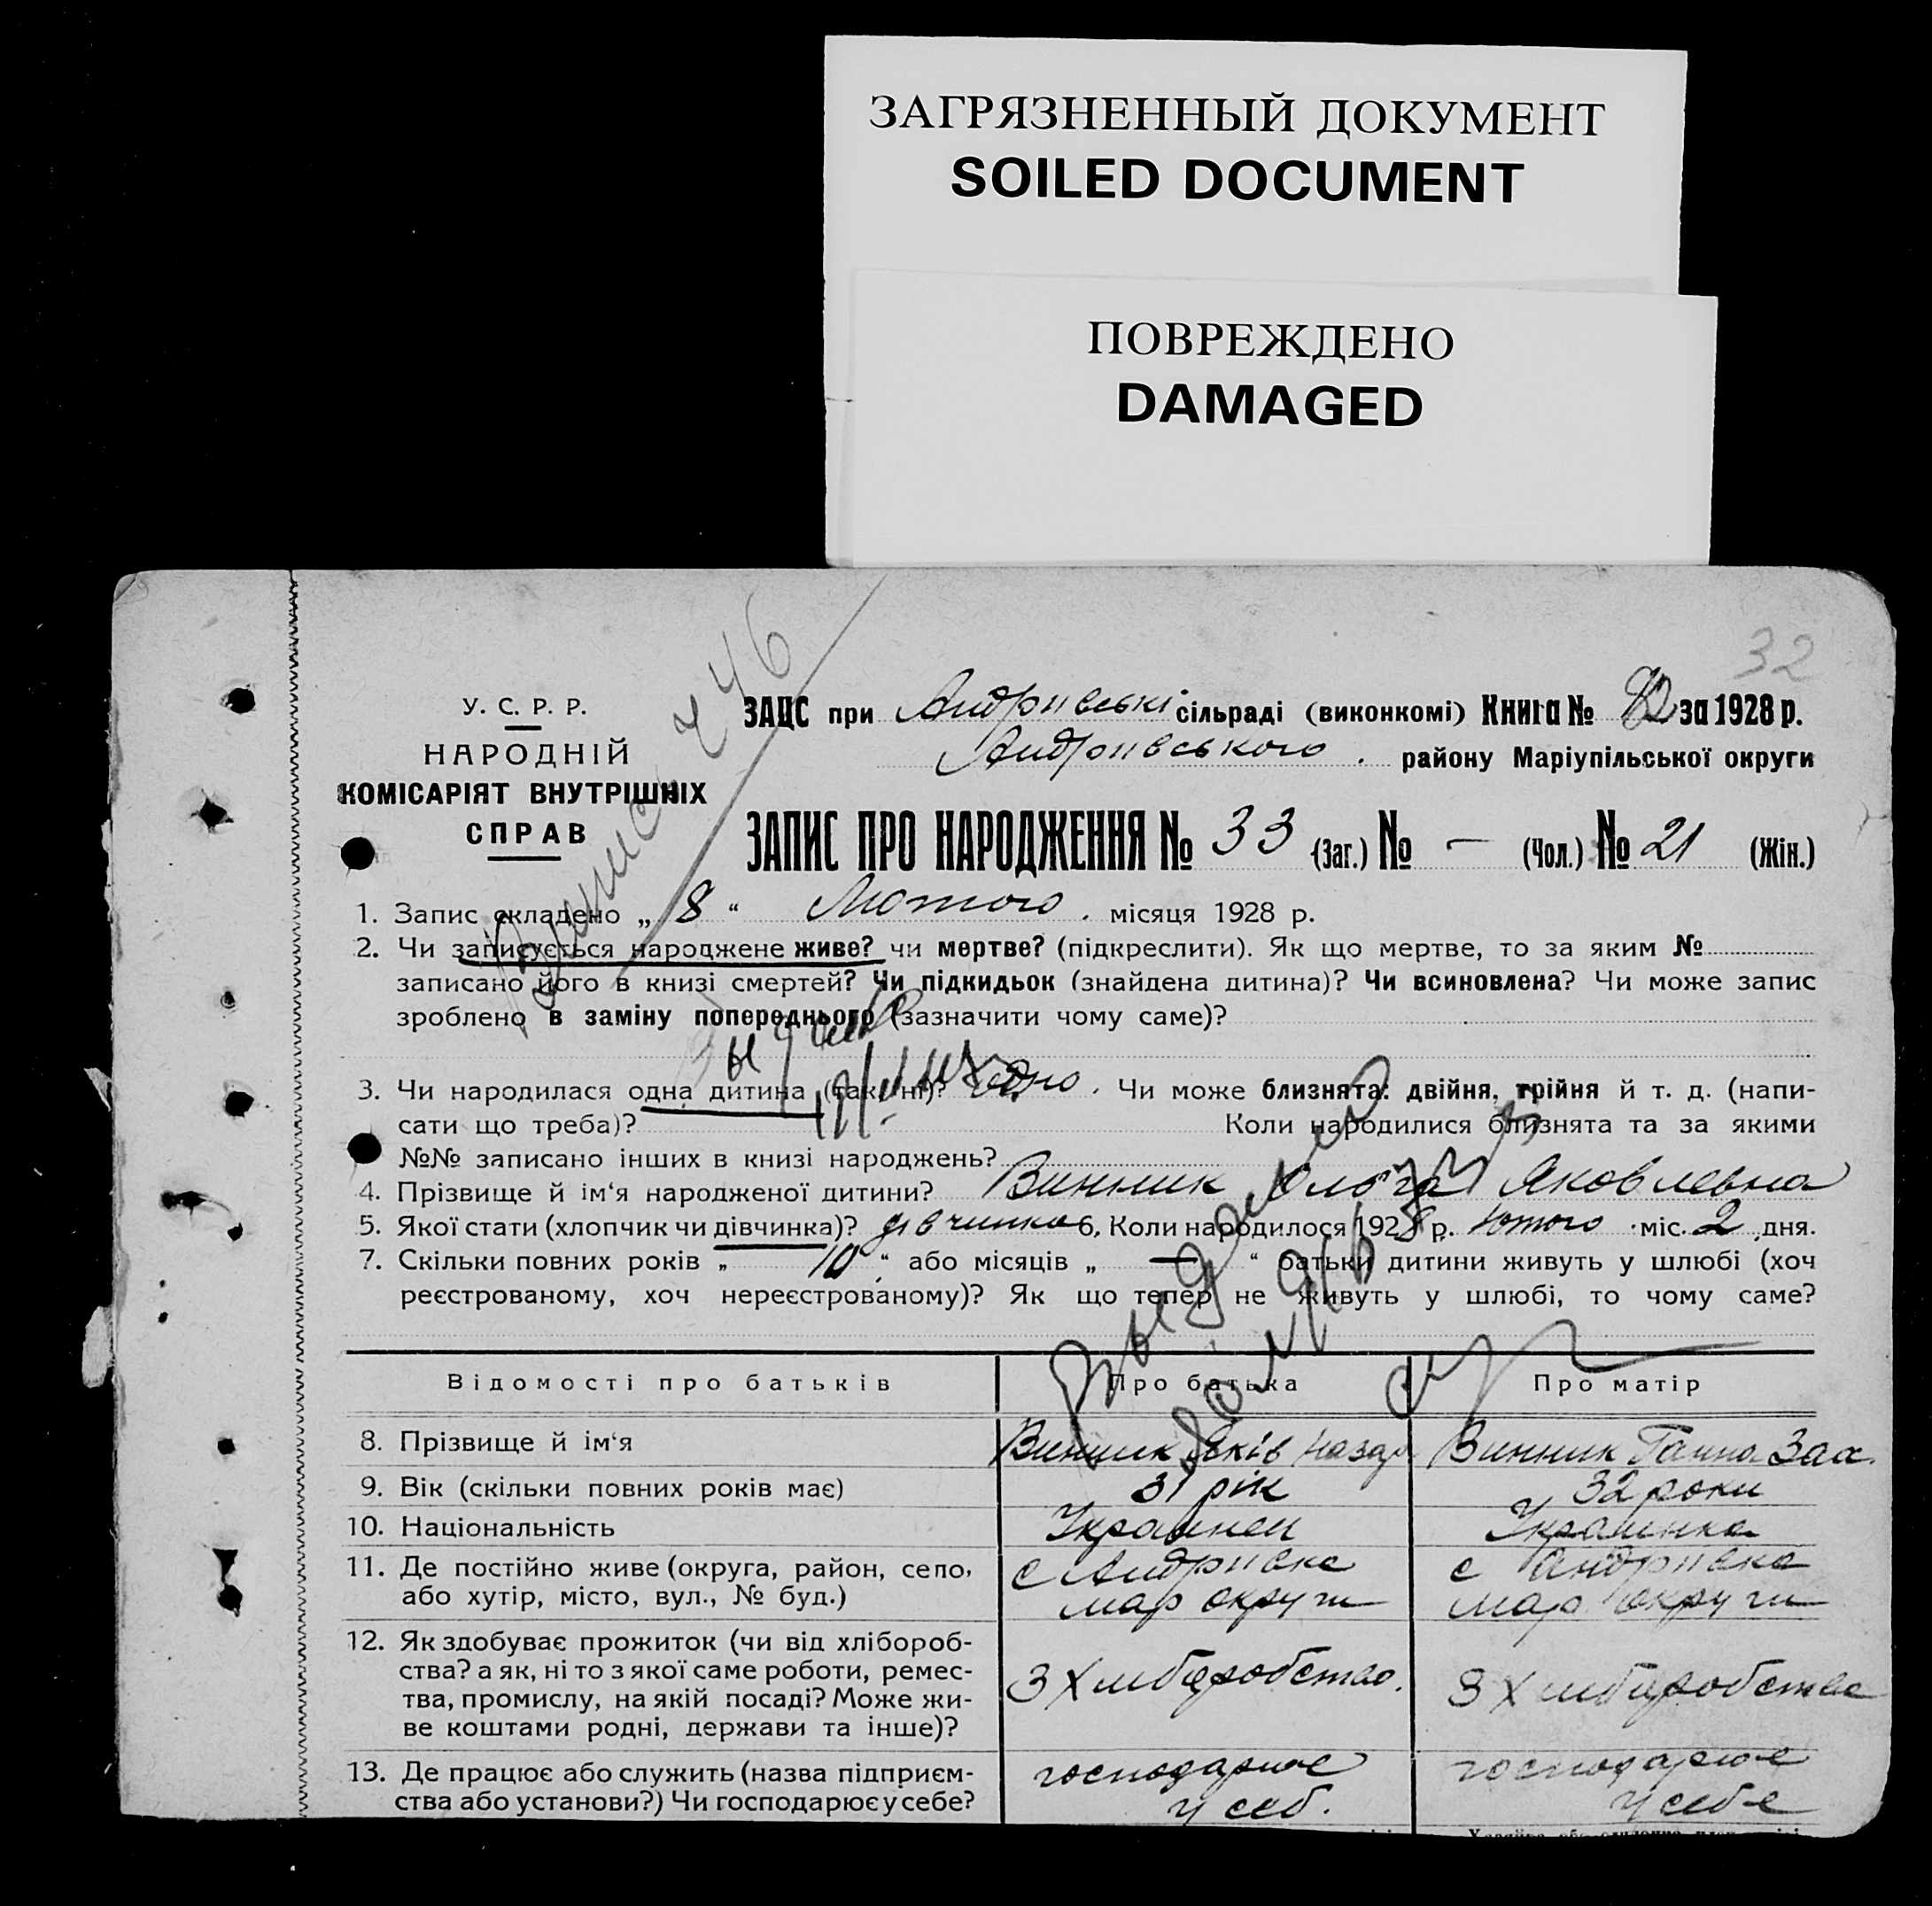 ЗАГРЯЗНЕННЫЙ ДОКУМЕНТ
SOILED DOCUMENT
ПОВРЕЖДЕНО
DAMAGED
32
У. С. Р. Р.
НАРОДНІЙ
КОМІСАРІЯТ ВНУТРІШНІХ
СПРАВ
ЗАЦС при Андріївські сільраді (виконкомі) Книга № за 1928 р.
Андріївського району Маріупільської округи
ЗАПИС ПРО НАРОДЖЕННЯ № 33 (Заг.) № — (Чол.) № 21 (Жін.)
1. Запис складено „ 8 “ Лютого місяця 1928 р.
2. Чи записується народжене живе? чи мертве? (підкреслити). Як що мертве, то за яким №
записано його в книзі смертей? Чи підкидьок (знайдена дитина)? Чи всиновлена? Чи може запис
зроблено в заміну попереднього (зазначити чому саме)?
3. Чи народилася одна дитина (так, ні)? одно. Чи може близнята: двійня, трійня й т. д. (напи-
сати що треба)? Коли народилися близнята та за якими
№№ записано інших в книзі народжень?
4. Прізвище й ім'я народженої дитини? Винник Ольга Яковлевна
5. Якої стати (хлопчик чи дівчинка)? дівчинка 6, Коли народилося 1928 р. Лютого міс. 2 дня.
7. Скільки повних років „ 10 “ або місяців „ — “ батьки дитини живуть у шлюбі (хоч
реєстрованому, хоч нереєстрованому)? Як що тепер не живуть у шлюбі, то чому саме?
Відомості про батьків Про батька Про матір
8. Прізвище й ім'я Винник Яків Назар Винник Ганна Зах.
9. Вік (скільки повних років має) 31 рік 32 роки
10. Національність Украинец Украинка
11. Де постійно живе (округа, район, село, с Андріївка с Андріївка
або хутір, місто, вул., № буд.) мар округи мар округи
12. Як здобуває прожиток (чи від хлібороб-
ства? а як, ні то з якої саме роботи, ремес- З Хліборобства. З Хліборобства
тва, промислу, на якій посаді? Може жи-
ве коштами родні, держави та інше)?
13. Де працює або служить (назва підприєм- господарює господарює
ства або установи?) Чи господарює у себе? у себ. у себе